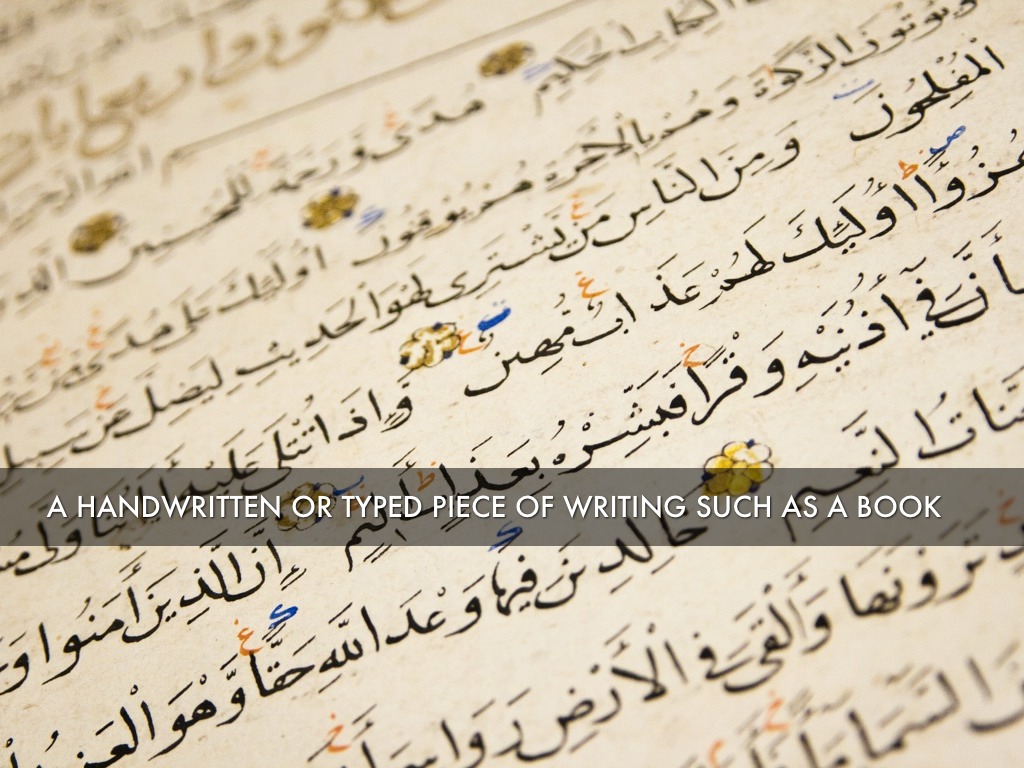 الكتاب الحكيم هُدًى وَرَحمة للمحسنين الذين
ويؤتون الزكوة وهم بالآخرة هم يوقنون اولئك على هدى من
المُفْلِحُونَ وَمِنَ النَّاسِ مَن يَشْتَرِى لهوَ الحَدِيثِ لِيُضِلَّ عَن سبيل
هُزُوًا أُولَئِكَ لَهُمْ عَذَابٌ مُهِين وَإِذَا تُتْلَى عَلَيْهِ آيَاتُنَا وَلَّى
كَأَنَّ فِي أُذُنَيْهِ وَقْرًا فَبَشِّرْهُ بِعَذَابٍ أَلِيمٍ إِنَّ الَّذِينَ آمَنُوا
جَنَّاتُ النَّعِيمِ خَالِدِينَ فِيهَا وَعْدَ اللَّهِ حَقًّا وَهُوَ الْعَزِيزُ
تَرَوْنَهَا وَأَلْقَى فِي الْأَرْضِ رَوَاسِيَ
السَّمَاءِ
A HANDWRITTEN OR TYPED PIECE OF WRITING SUCH AS A BOOK